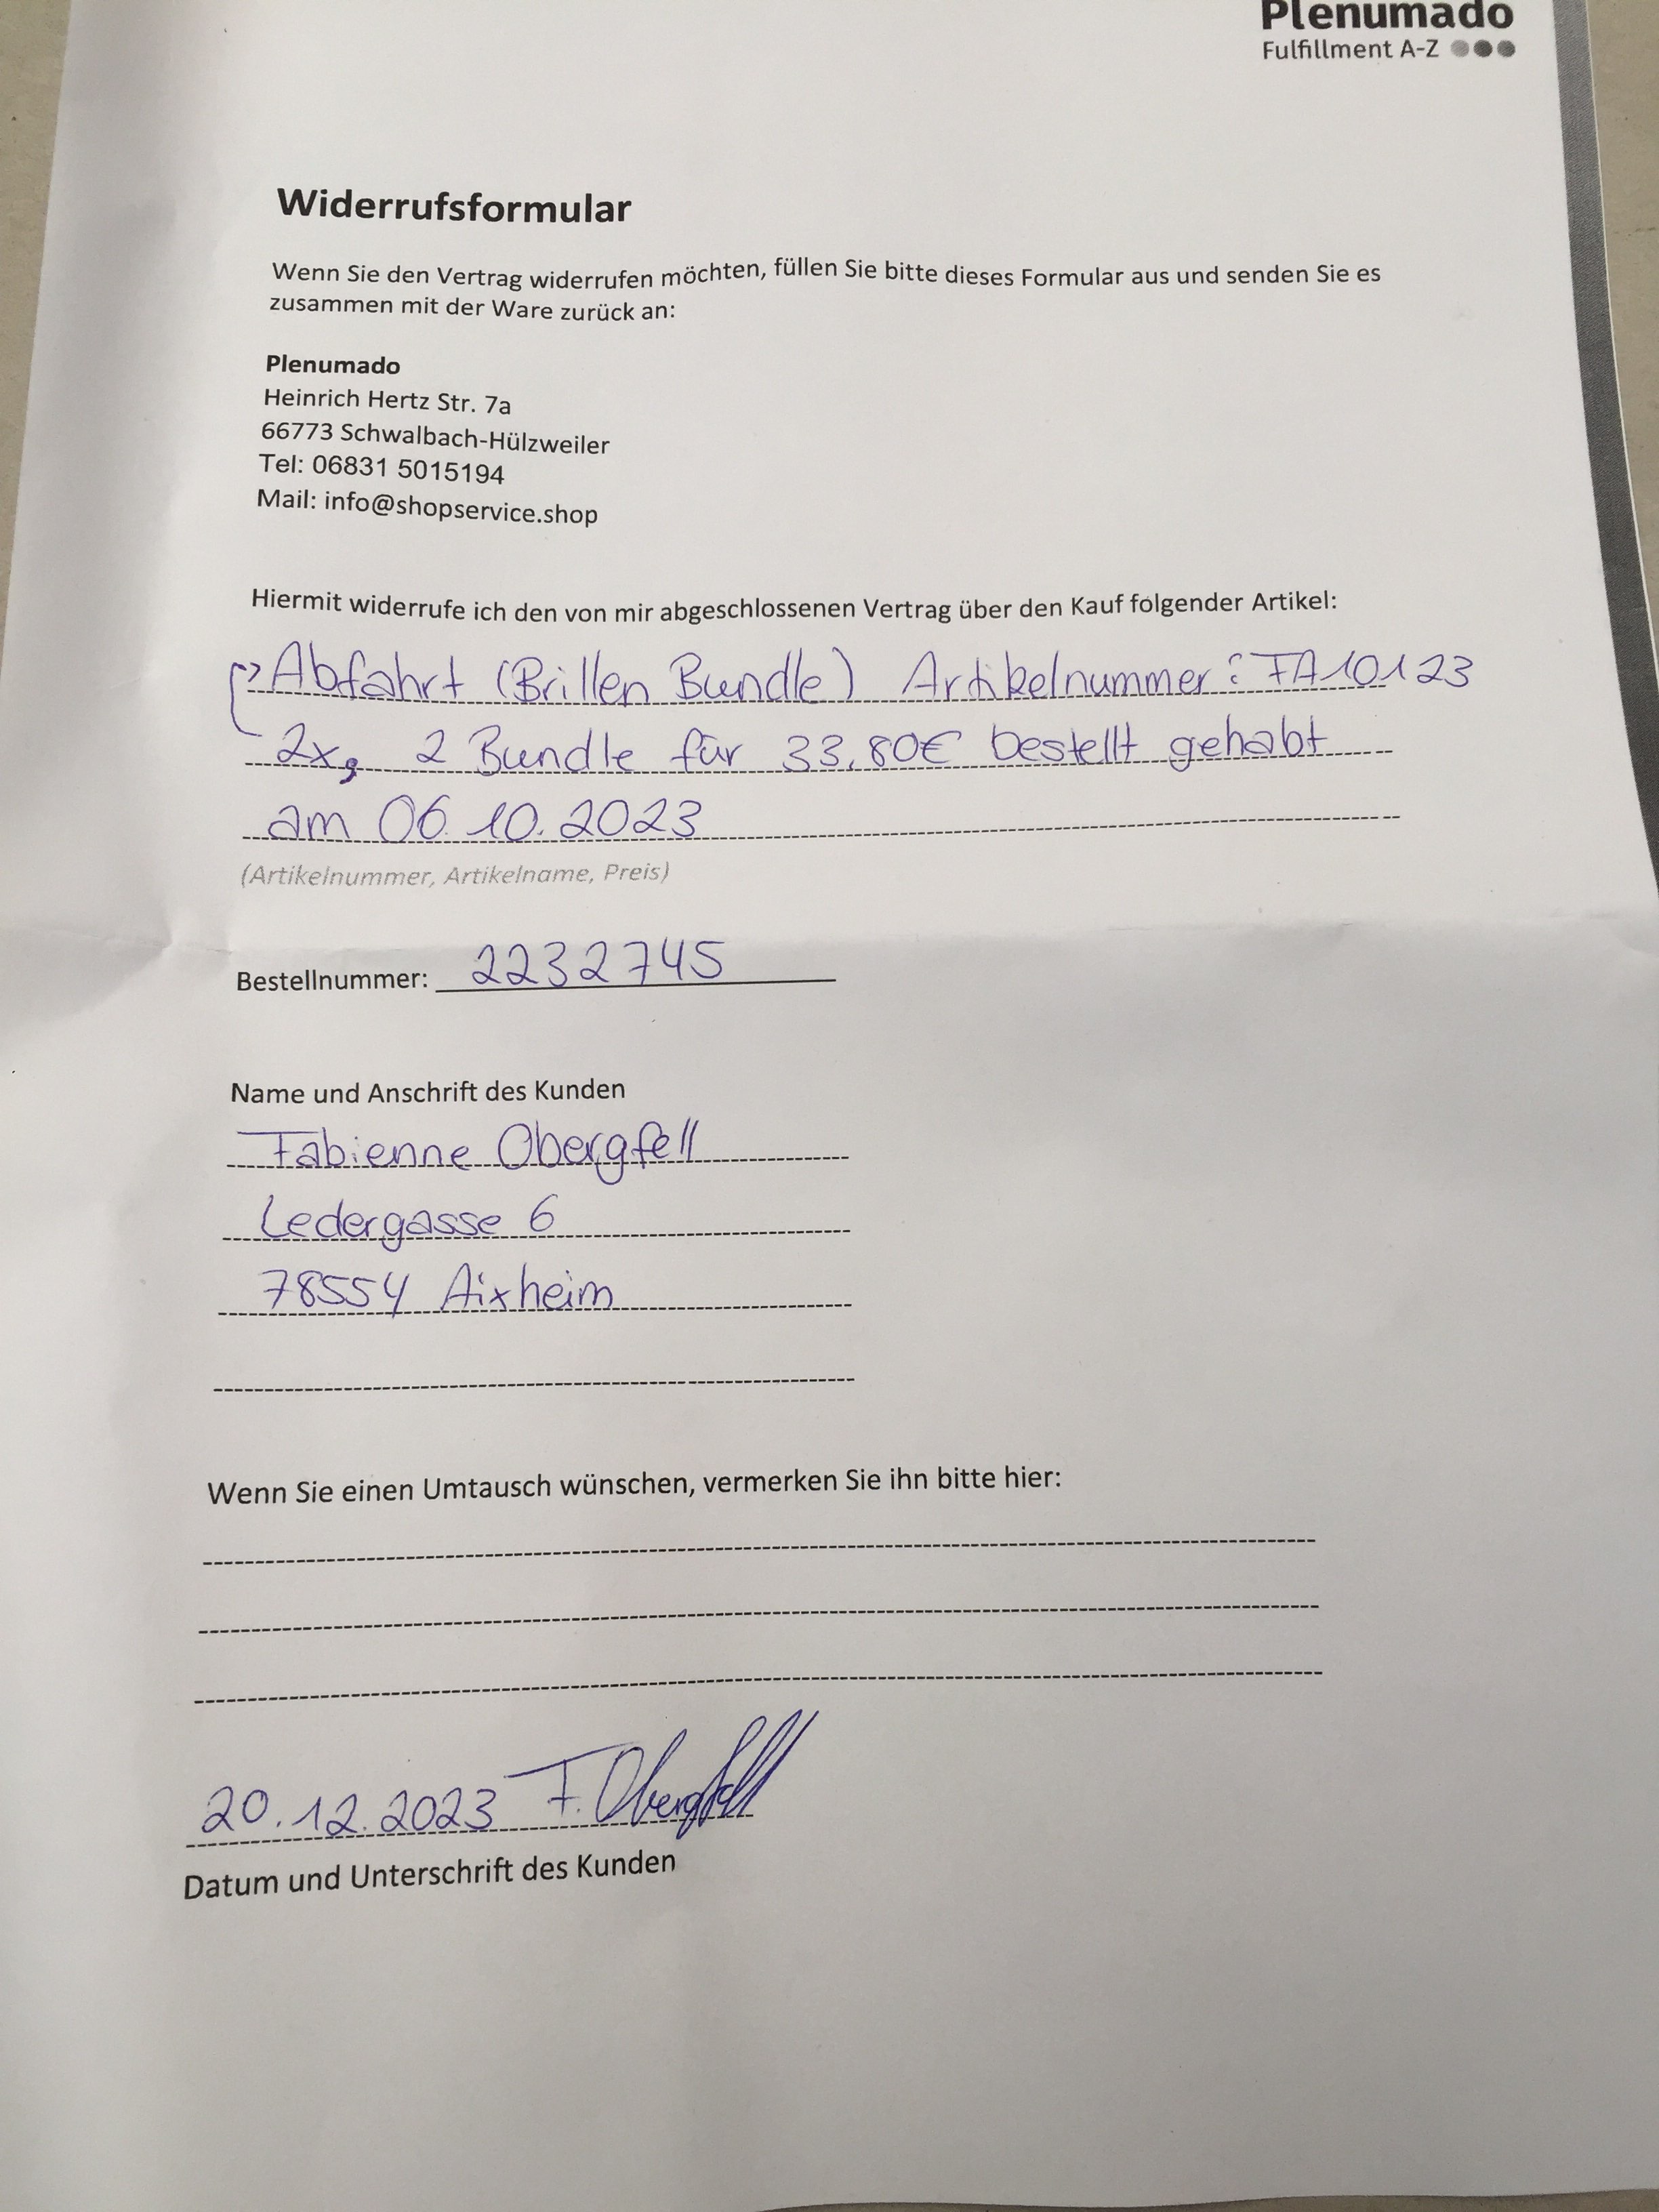 Plenumado
Fulfillment A-Z
Widerrufsformular
Wenn Sie den Vertrag widerrufen möchten, füllen Sie bitte dieses Formular aus und senden Sie es
zusammen mit der Ware zurück an:
Plenumado
Heinrich Hertz Str. 7a
66773 Schwalbach-Hülzweiler
Tel: 06831 5015194
Mail: info@shopservice.shop
Hiermit widerrufe ich den von mir abgeschlossenen Vertrag über den Kauf folgender Artikel:
Abfahrt (Brillen Bundle) Artikelnummer: FA10123
2x, 2 Bundle für 33,80€ bestellt gehabt
am 06.10.2023
(Artikelnummer, Artikelname, Preis)
Bestellnummer: 2232745
Name und Anschrift des Kunden
Fabienne Obergfell
Ledergasse 6
78554 Aixheim
Wenn Sie einen Umtausch wünschen, vermerken Sie ihn bitte hier:
20.12.2023 F. Obergfell
Datum und Unterschrift des Kunden